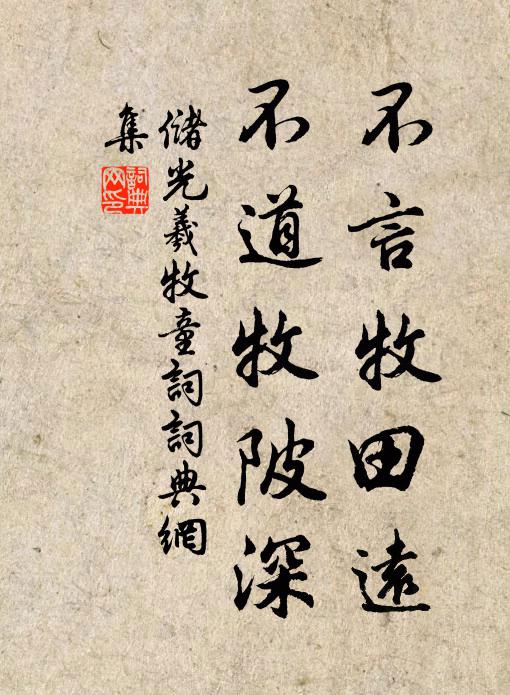 不言牧田遠
不道牧陂深
儲光羲牧童詞詞典網
集
詞典
网印